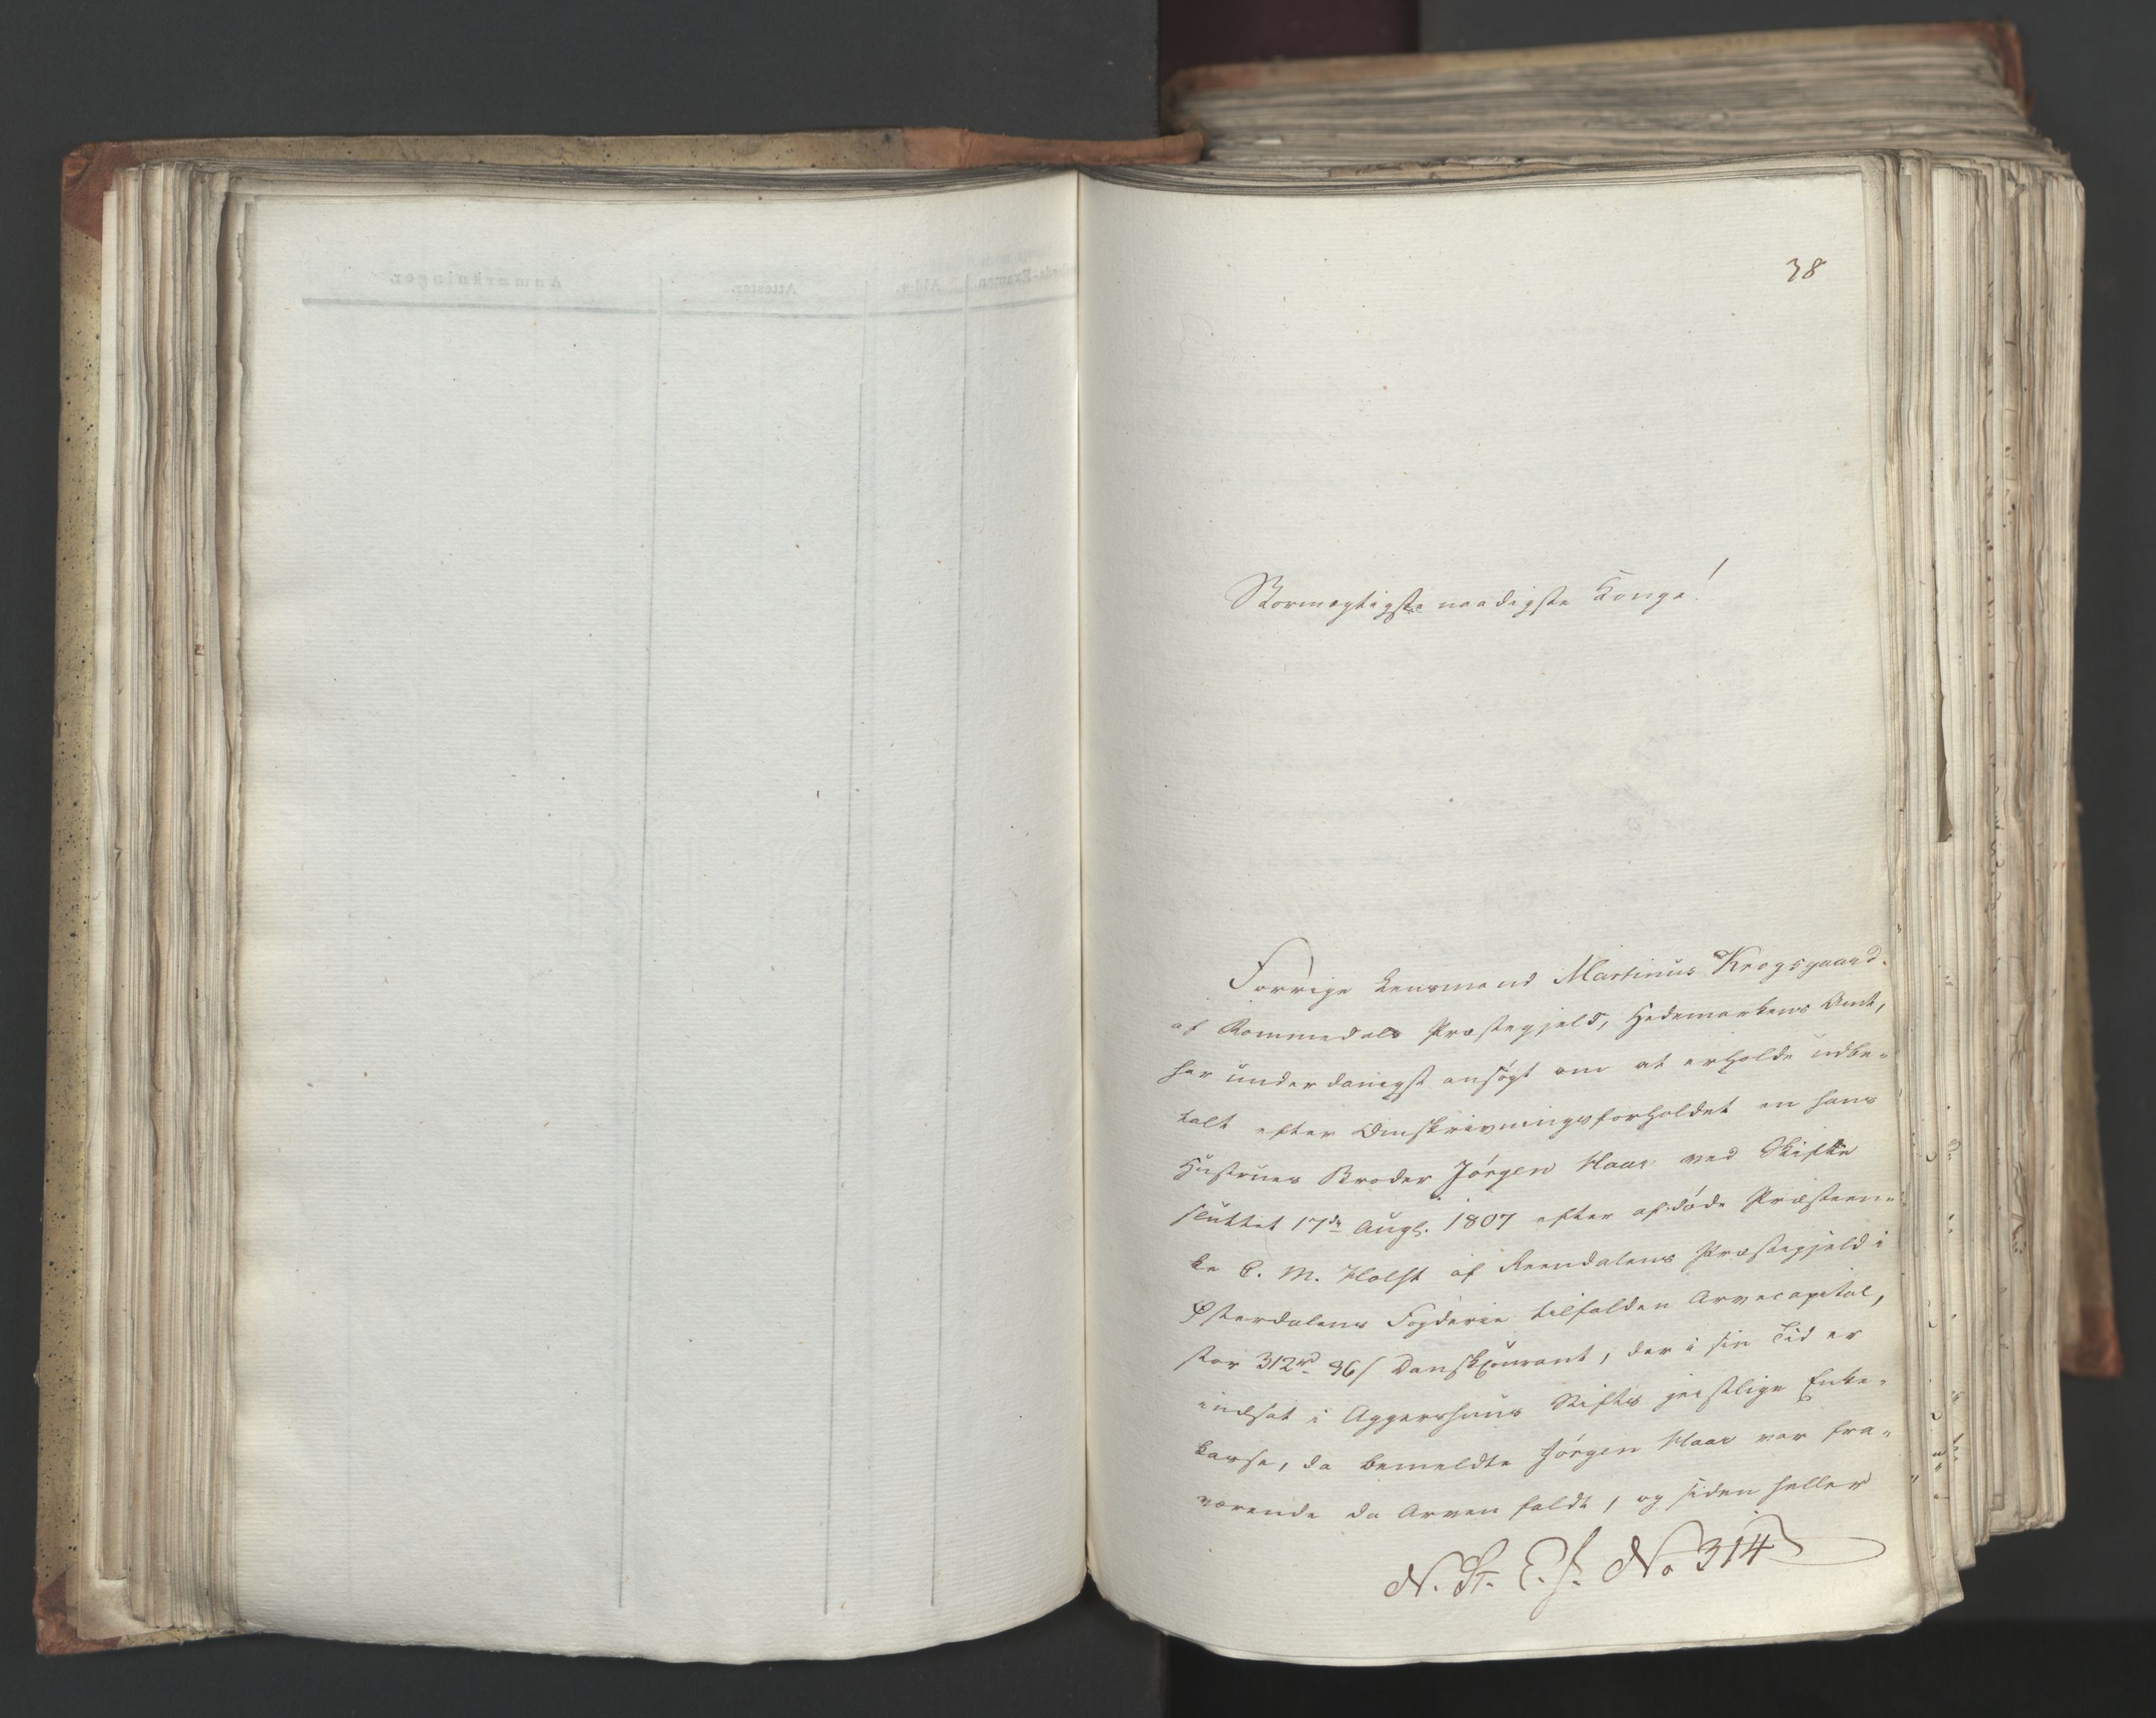 38
Stormægtigste naadigste Konge!
Forrige Lensmand Martinus Krogsgaard
af Rommedals Præstegjeld, Hedemarkens Amt,
har underdanigst ansøgt om at erholde udbe-
talt efter Omskrivningsforholdet en hans
Hustrues Broder Jørgen Haar ved Skifte
sluttet 17de Augs. 1807 efter afdøde Præsteen-
ke C. M. Holst af Reendalens Præstegjeld i
Østerdalens Fogderie tilfalden Arvecapital,
stor 312rd 36s Dansk Courant, der i sin Tid er
indsat i Aggershuus Stifts geistlige Enke-
kasse, da bemeldte Jørgen Haar var fra-
værende da Arven faldt, og siden heller
N. St. E. f. No 314